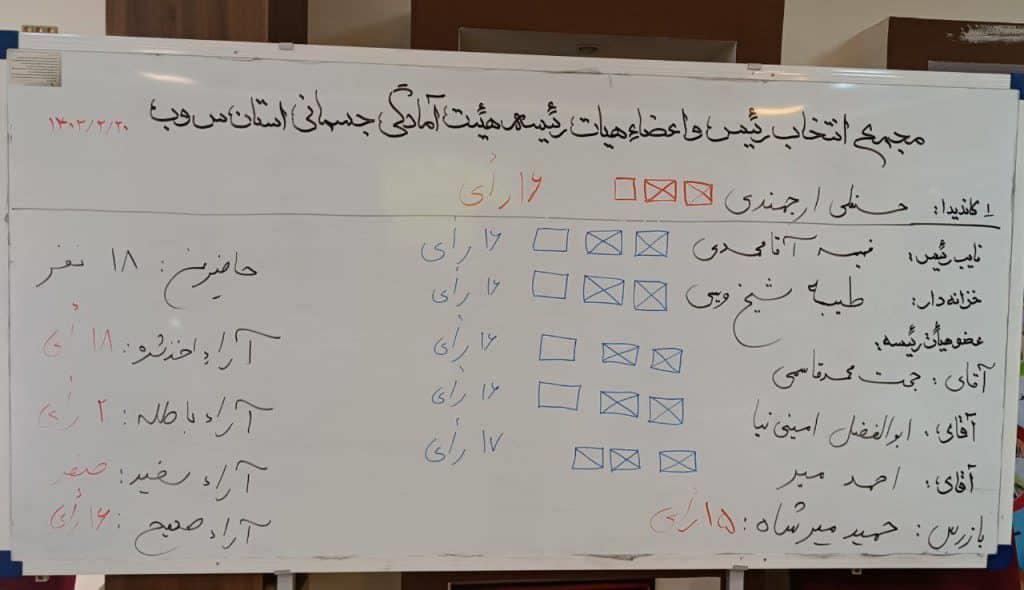 مجمع انتخاب رئیس و اعضاء هیات رئیسه هیئت آمادگی جسمانی استان س و ب
۱۴۰۳/۲/۲۰
۱ کاندیدا: حسنعلی ارجمندی ۱۶ رأی
نایب رئیس: آقامحمدی ۱۶ رأی
خزانه دار: طیبه شیخ ویسی ۱۶ رأی
عضو هیأت رئیسه:
آقای: حجت محمدقاسمی ۱۶ رأی
آقای: ابوالفضل امینی نیا ۱۶ رأی
آقای: احمد میر ۱۷ رأی
بازرس: حمید میرشاه: ۱۵ رأی
حاضرین: ۱۸ نفر
آراء اخذ شده: ۱۸ رأی
آراء باطله: ۲ رأی
آراء سفید: صفر
آراء صحیح: ۱۶ رأی